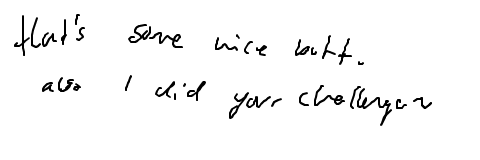 that's some nice butt.
also I did your challenge